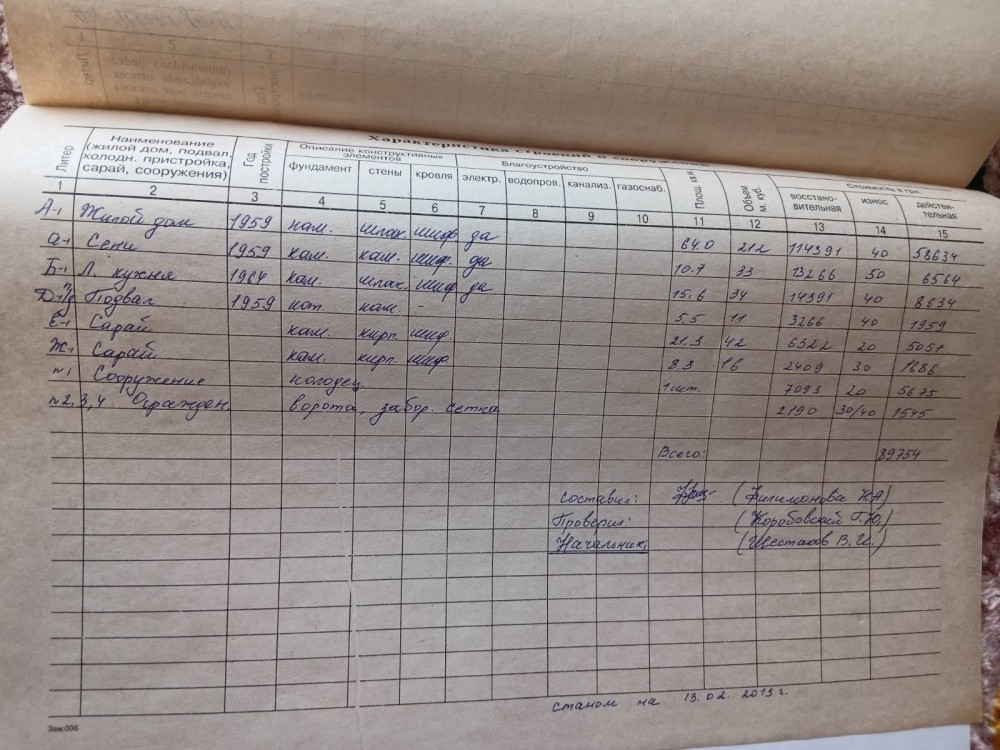 Характеристика строений и сооружений
Литер
Наименование (жилой дом, подвал, холодн. пристройка, сарай, сооружения)
Год постройки
Описание конструктивных элементов
Благоустройство
Площ. кв.м
Объем м. куб.
Стоимость в грн.
фундамент стены кровля электр. водопров. канализ. газоснаб. восстано-вительная износ действи-тельная
1 2 3 4 5 6 7 8 9 10 11 12 13 14 15
А-1 Жилой дом 1959 кам. шлак. шиф. да 64.0 212 114391 40 58634
а-1 Сени 1959 кам. кам. шиф. да 10.7 33 13266 50 6564
Б-1 Л. кухня 1964 кам. шлак. шиф. да 15.6 34 14391 40 8634
Подвал 1959 кот. кам. 5.5 11 3266 40 1959
Е-1 Сарай кам. кирп. шиф. 21.3 42 6322 20 5057
Ж-1 Сарай кам. кирп. шиф. 8.3 16 2409 30 1686
№1 Сооружение колодец 1 шт. 7093 20 5675
№2,3,4 Огражден. ворота, забор. сетка 2190 30/40 1545
Всего: 89754
Составил: (Филимонова Н.А)
Проверил: (Коробовский Г.Ю.)
Начальник: (Шестаков В.И.)
станом на 13.02.2013 г.
Зам.006